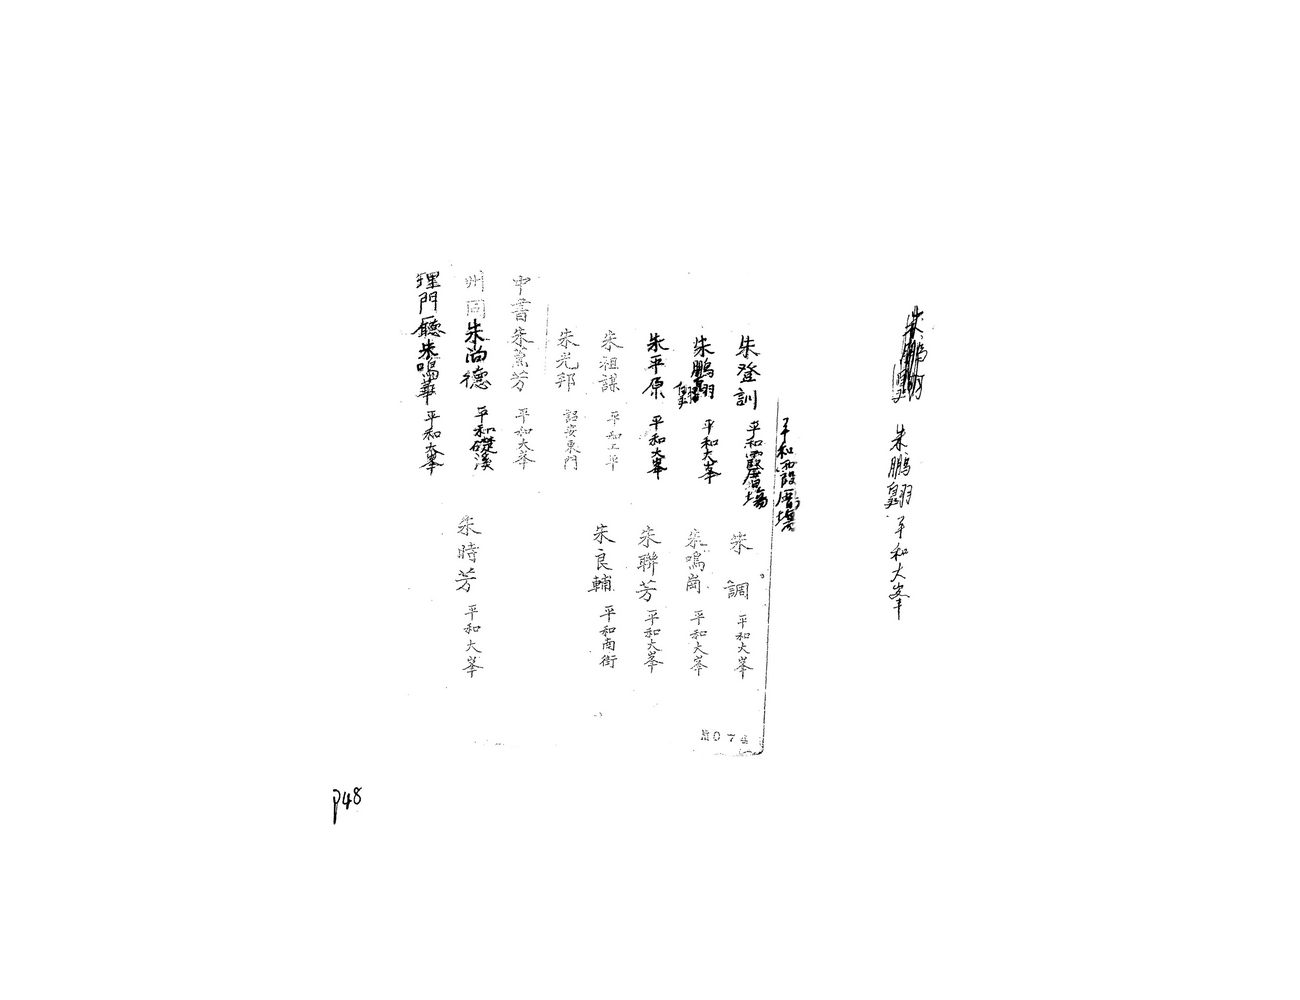 朱鵬
朱鵬翾 平和大峯
平和霞厝塲
朱登訓 平和霞厝塲
朱調 平和大峯
朱鵬翾 平和大峯
朱鳴崗 平和大峯
朱平原 平和大峯
朱聯芳 平和大峯
朱祖謀 平和上平
朱良輔 平和南街
朱光邦 詔安東門
中書朱薰芳 平和大峯
州同朱尚德 平和礤溪
朱時芳 平和大峯
理門廳朱鳴華 平和大峯
074
P48